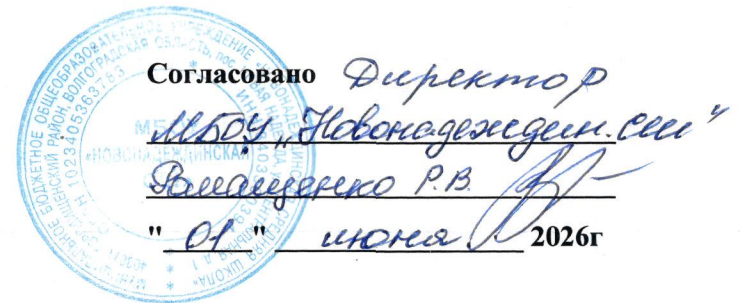 Согласовано Директор
МБОУ „Новонадеждин. СШ"
Ромащенко Р.В.
"01" июня 2026г
МУНИЦИПАЛЬНОЕ БЮДЖЕТНОЕ ОБЩЕОБРАЗОВАТЕЛЬНОЕ УЧРЕЖДЕНИЕ «НОВОНАДЕЖДИНСКАЯ СРЕДНЯЯ ШКОЛА»
РАЙОН, ВОЛГОГРАДСКАЯ ОБЛАСТЬ, пос.
1023405363783
«НОВОНАДЕЖДИНСКАЯ